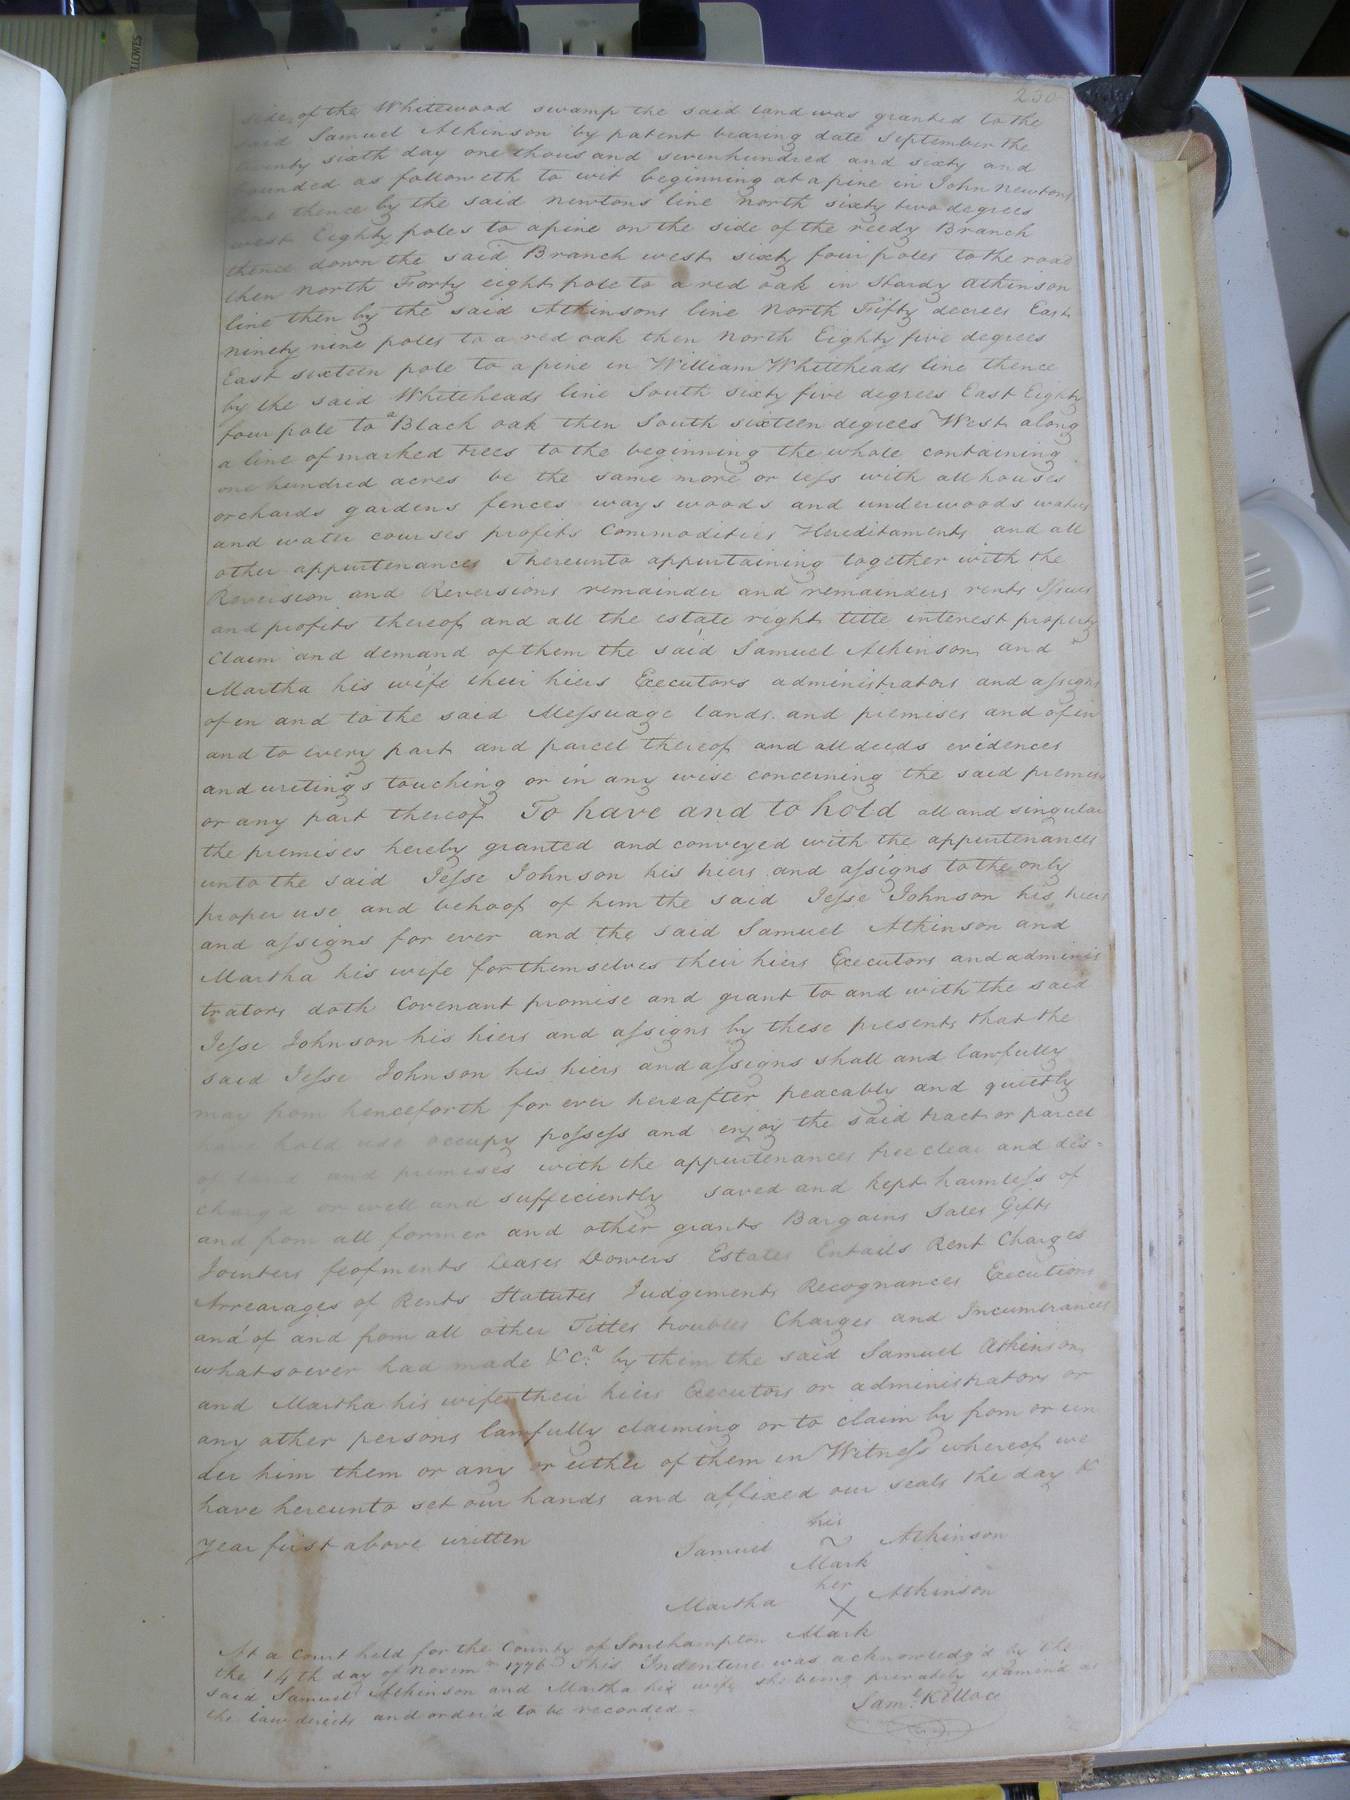 LLOWES
230
side of the Whitewood swamp the said land was granted to the
said Samuel Atkinson by patent bearing date September the
twenty sixth day one thousand sevenhundred and sixty and
bounded as followeth to wit beginning at a pine in John Newtons
line thence by the said Newtons line North sixty two degrees
west Eighty poles to a pine on the side of the reedy Branch
thence down the said Branch west sixty four poles to the road
then North Forty eight pole to a red oak in Hardy Atkinson
line then by the said Atkinsons line North Fifty decrees East
ninety nine poles to a red oak then North Eighty five degrees
East sixteen pole to a pine in William Whiteheads line thence
by the said Whiteheads line South sixty five degrees East Eighty
four pole to a Black oak then South sixteen degrees West along
a line of marked trees to the beginning the whole containing
one hundred acres be the same more or less with all houses
orchards gardens fences ways woods and underwoods waters
and water courses profits Commodities Hereditaments and all
other appurtenances Thereunto appurtaining together with the
Reversion and Reversions remainder and remainders rents Issues
and profits thereof and all the estate right title interest property
Claim and demand of them the said Samuel Atkinson and
Martha his wife their hiers Executors administrators and assigns
of in and to the said Messuage lands and premises and of in
and to every part and parcel thereof and all deeds evidences
and writings touching or in any wise concerning the said premises
or any part thereof To have and to hold all and singular
the premises hereby granted and conveyed with the appurtenances
unto the said Jesse Johnson his hiers and assigns to the only
proper use and behoof of him the said Jesse Johnson his hiers
and assigns for ever and the said Samuel Atkinson and
Martha his wife for themselves their hiers Executors and adminis
trators doth Covenant promise and grant to and with the said
Jesse Johnson his hiers and assigns by these presents that the
said Jesse Johnson his hiers and assigns shall and lawfully
may from henceforth for ever hereafter peacably and quietly
have hold use occupy possess and enjoy the said tract or parcel
of land and premises with the appurtenances free clear and dis=
charg'd or well and sufficiently saved and kept harmless of
and from all former and other grants Bargains Sales Gifts
Jointers feofments Leases Dowers Estates Entails Rent Charges
Arrearages of Rents Statutes Judgements Recognances Executions
and of and from all other Tittes troubles Charges and Incumbrances
whatsoever had made &Ca. by them the said Samuel Atkinson
and Martha his wife their hiers Executors or administrators or
any other persons lawfully claiming or to claim by from or un
der him them or any or either of them in Witness whereof we
have hereunto set our hands and affixed our seals the day &
year first above written
his
Samuel ~ Atkinson
Mark
her
Martha X Atkinson
Mark
At a Court held for the County of Southampton
the 14th day of Novemr 1776 This Indenture was acknowledg'd by the
said Samuel Atkinson and Martha his wife she being privately examin'd as
the law directs and order'd to be recorded.
Saml. Kello